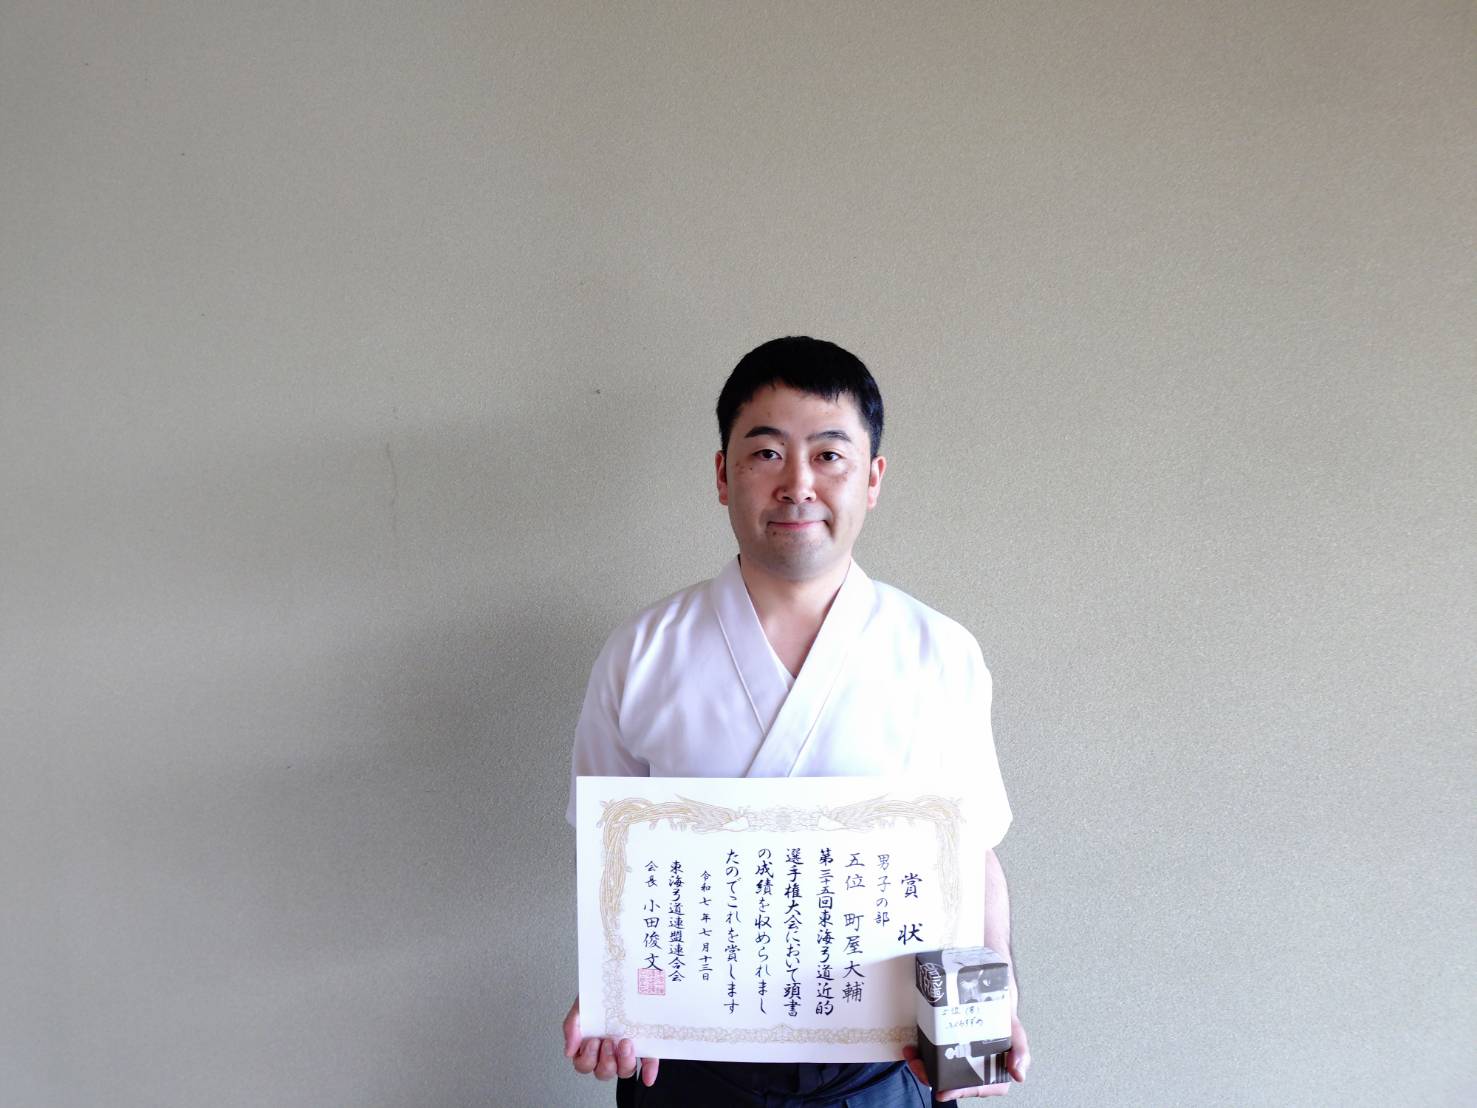 賞状
男子の部
五位 町屋大輔
第三十五回東海弓道近的
選手権大会において頭書
の成績を収められまし
たのでこれを賞します
令和七年七月十三日
東海弓道連盟連合会
会長 小田俊文
五位(男)
ふくらすずめ